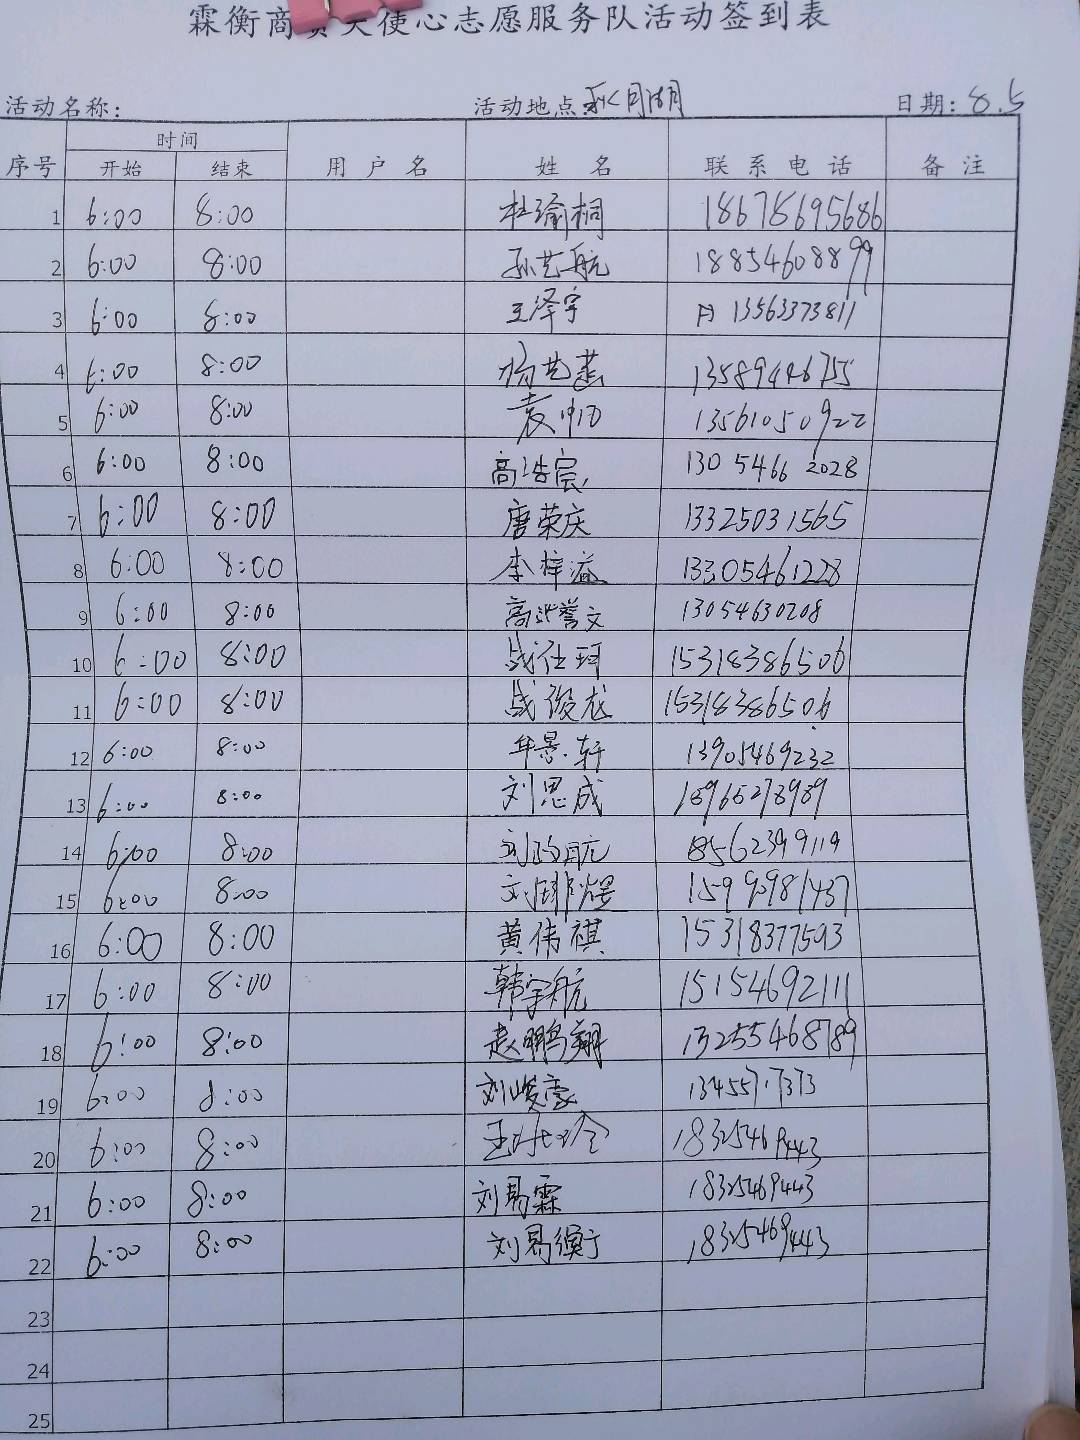 霖衡商贸天使心志愿服务队活动签到表
活动名称: 活动地点: 月湖 日期: 8.5
序号 时间 用户名 姓名 联系电话 备注
开始 结束
1 6:00 8:00 杜瑜桐 18678695686
2 6:00 8:00 孙艺航 18854608899
3 6:00 8:00 王泽宇 13563373811
4 6:00 8:00 杨艺 13589446755
5 6:00 8:00 袁 13561050922
6 6:00 8:00 高浩宸 1305466 2028
7 6:00 8:00 唐荣庆 13325031565
8 6:00 8:00 李梓溢 13305461228
9 6:00 8:00 高兆誉文 13054630208
10 6:00 8:00 战仕珂 15318386506
11 6:00 8:00 战俊龙 15318386506
12 6:00 8:00 牟景轩 13905469232
13 6:00 8:00 刘思成 18965278989
14 6:00 8:00 刘政航 18562399119
15 6:00 8:00 刘 15990981437
16 6:00 8:00 黄伟祺 15318377593
17 6:00 8:00 韩宇航 15154692111
18 6:00 8:00 赵鹏翔 13255468789
19 6:00 8:00 刘峻豪
20 6:00 8:00 王 18325469443
21 6:00 8:00 刘易霖 18325469443
22 6:00 8:00 刘易衡 18325469443
23
24
25